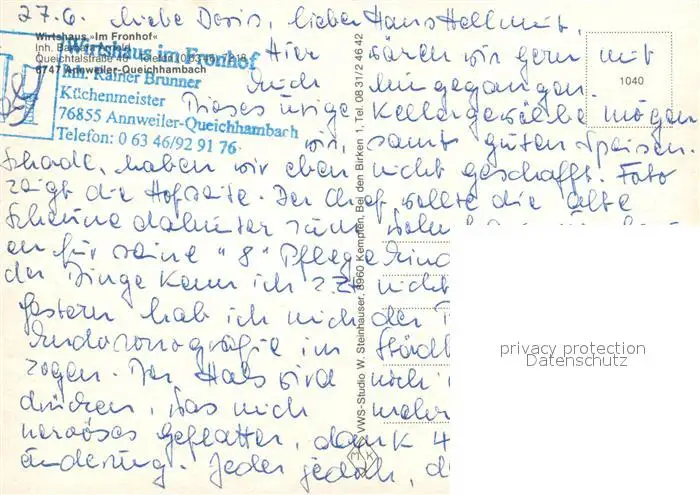 27.6. Liebe Doris, lieber Hans Hellmut,
Wirtshaus »Im Fronhof«
Inh. Barbara
Queichtalstraße
6747 Annweiler-Queichhambach
Wirtshaus im Fronhof
Inh. Rainer Brunner
Küchenmeister
76855 Annweiler-Queichhambach
Telefon: 0 63 46/92 91 76
1040
Hier wären wir gern mit
Euch hingegangen.
Dieses urige Kellergewölbe mögen
wir, samt guten Speisen.
Schade, haben wir eben nicht geschafft. Foto
zeigt die Hofseite. Der Chef wollte die alte
Scheune dahinter zum
en für seine "8" Pflegekind
der Dinge kann ich z.Zt. nicht
gestern hab ich mich der
Endosonografie im Städt
zogen. Der Hals wird noch
drücken, was mich mehr
nervöses Geflatter, dank
änderung. Jeder jedoch, d
VWS-Studio W. Steinhauser, 8960 Kempten, Bei den Birken 1, Tel. 08 31/2 46 42
privacy protection
Datenschutz